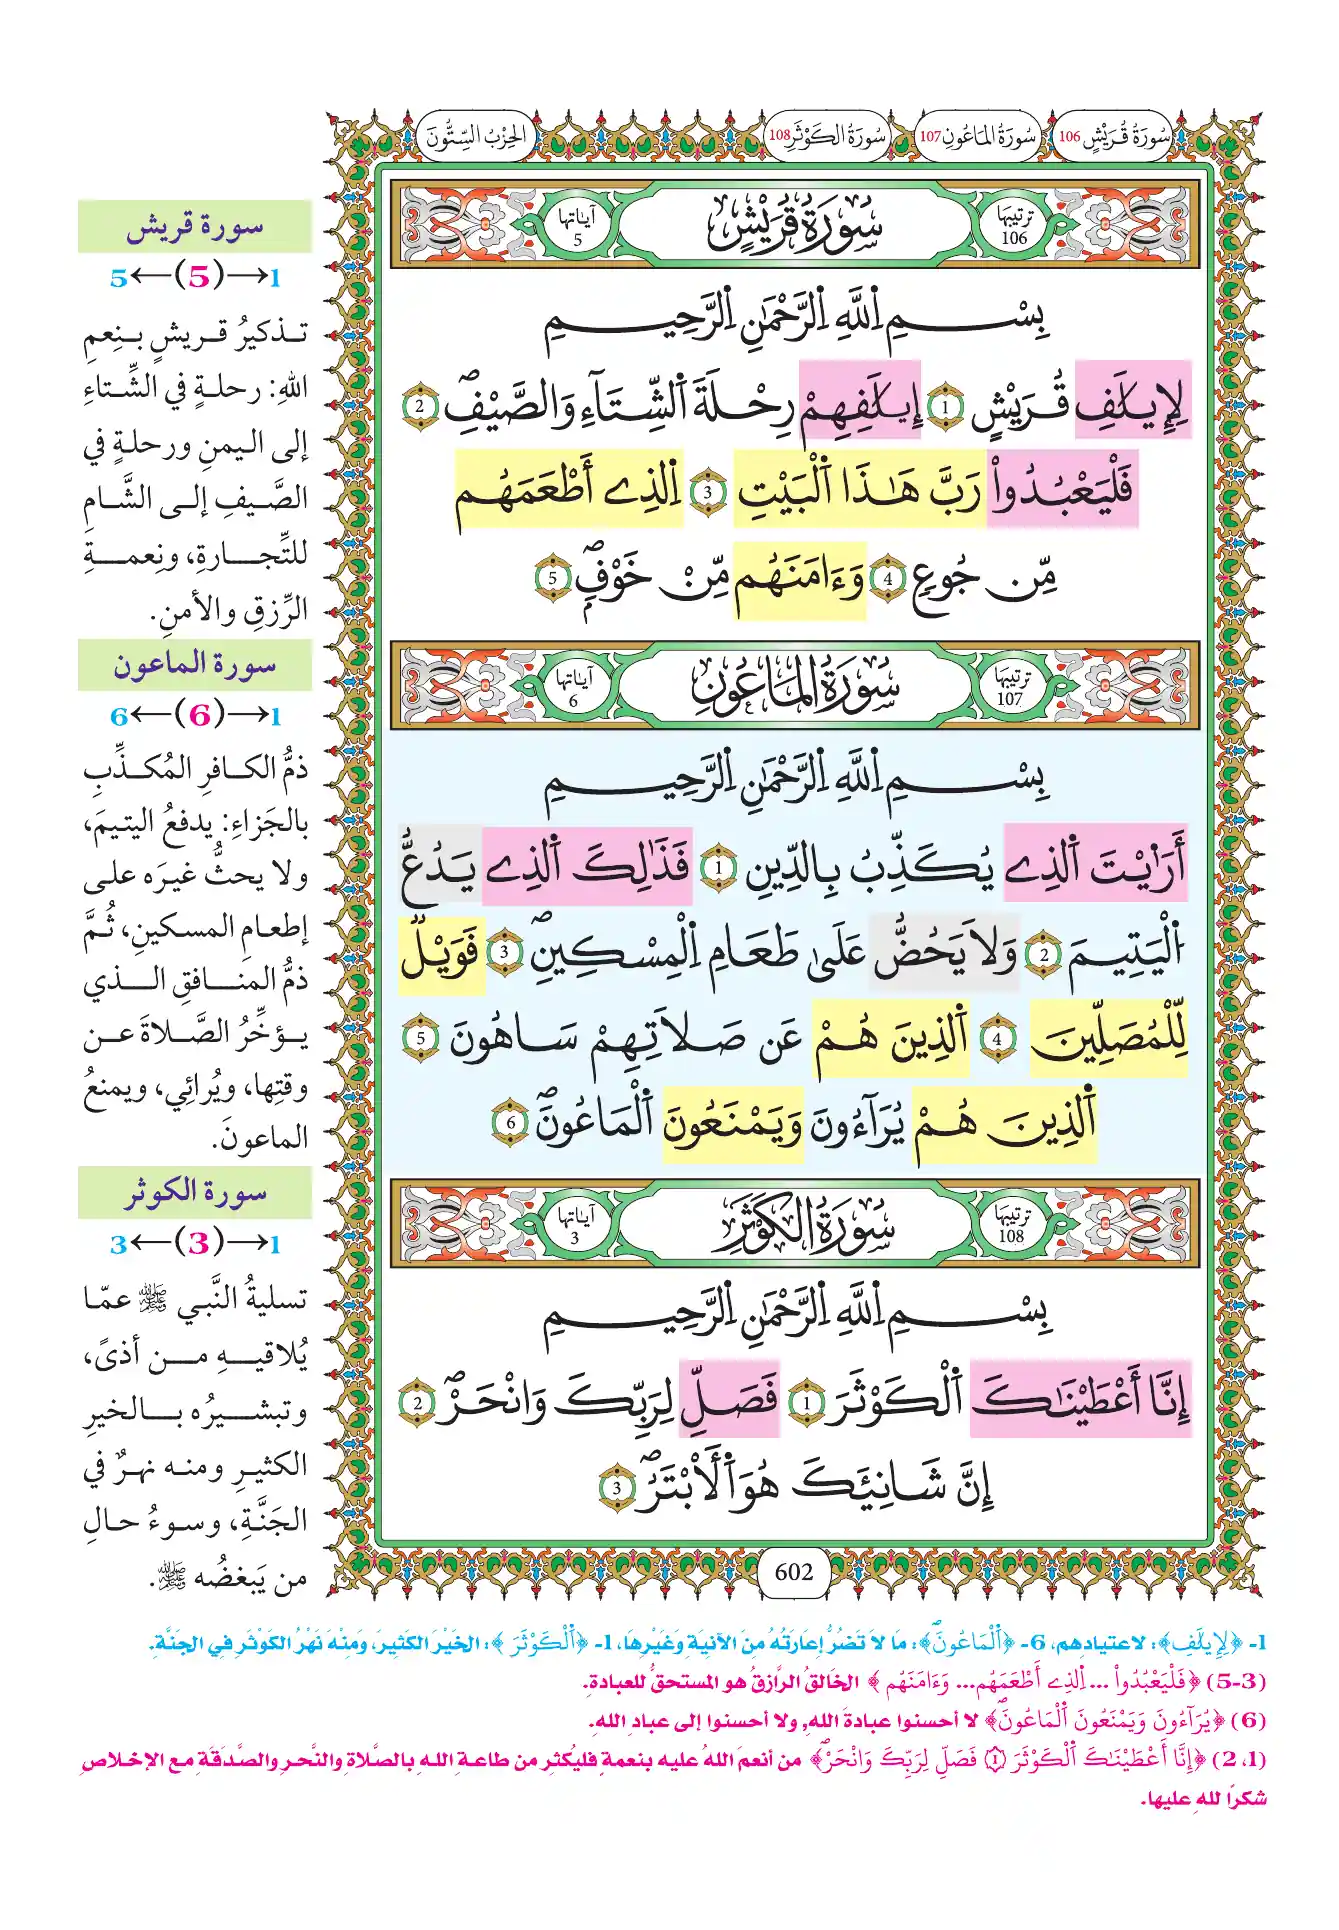 سُورَةُ قُرَيْشٍ 106
سُورَةُ المَاعُونِ 107
سُورَةُ الكَوْثَرِ 108
الحِزْبُ السِّتُّونَ
ترتيبها 106
سُورَةُ قُرَيْشٍ
آياتها 5
بِسْمِ اِ۬للَّهِ اِ۬لرَّحْمَٰنِ اِ۬لرَّحِيمِ
لِإِيلَٰفِ قُرَيْشٍ 1 إِۦلَٰفِهِمْ رِحْلَةَ اَ۬لشِّتَآءِ وَالصَّيْفِۖ 2
فَلْيَعْبُدُواْ رَبَّ هَٰذَا اَ۬لْبَيْتِ 3 اِ۬لذِے أَطْعَمَهُم
مِّن جُوعٍ 4 وَءَامَنَهُم مِّنْ خَوْفٍۖ 5
ترتيبها 107
سُورَةُ المَاعُونِ
آياتها 6
بِسْمِ اِ۬للَّهِ اِ۬لرَّحْمَٰنِ اِ۬لرَّحِيمِ
أَرَٰيْتَ اَ۬لذِے يُكَذِّبُ بِالدِّينِ 1 فَذَٰلِكَ اَ۬لذِے يَدُعُّ
اُ۬لْيَتِيمَ 2 وَلَا يَحُضُّ عَلَىٰ طَعَامِ اِ۬لْمِسْكِينِۖ 3 فَوَيْلٌ
لِّلْمُصَلِّينَ 4 اَ۬لذِينَ هُمْ عَن صَلَاتِهِمْ سَاهُونَ 5
اَ۬لذِينَ هُمْ يُرَآءُونَ وَيَمْنَعُونَ اَ۬لْمَاعُونَۖ 6
ترتيبها 108
سُورَةُ الكَوْثَرِ
آياتها 3
بِسْمِ اِ۬للَّهِ اِ۬لرَّحْمَٰنِ اِ۬لرَّحِيمِ
إِنَّا أَعْطَيْنَٰكَ اَ۬لْكَوْثَرَ 1 فَصَلِّ لِرَبِّكَ وَانْحَرْۖ 2
إِنَّ شَانِئَكَ هُوَ اَ۬لَابْتَرُۖ 3
602
سورة قريش
1→(5)←5
تذكيرُ قريشٍ بنِعمِ
اللهِ: رحلةٍ في الشِّتاءِ
إلى اليمنِ ورحلةٍ في
الصَّيفِ إلى الشَّامِ
للتِّجارةِ، ونِعمةِ
الرِّزقِ والأمنِ.
سورة الماعون
1→(6)←6
ذمُّ الكافرِ المُكذِّبِ
بالجَزاءِ: يدفعُ اليتيمَ،
ولا يحثُّ غيرَه على
إطعامِ المسكينِ، ثُمَّ
ذمُّ المنافقِ الذي
يؤخِّرُ الصَّلاةَ عن
وقتِها، ويُرائِي، ويمنعُ
الماعونَ.
سورة الكوثر
1→(3)←3
تسليةُ النَّبي ﷺ عمّا
يُلاقيهِ من أذىً،
وتبشيرُه بالخيرِ
الكثيرِ ومنه نهرٌ في
الجَنَّةِ، وسوءُ حالِ
من يَبغضُه ﷺ.
1- ﴿لِإِيلَٰفِ﴾: لاعتيادهم، 6- ﴿اَ۬لْمَاعُونَۖ﴾: مَا لَا تَضُرُّ إِعَارَتُهُ مِنَ الآنِيَةِ وَغَيْرِهَا، 1- ﴿اَ۬لْكَوْثَرَ﴾: الخَيْرَ الكَثِيرَ، وَمِنْهُ نَهْرُ الكَوْثَرِ فِي الجَنَّةِ.
(3-5) ﴿فَلْيَعْبُدُواْ ... اِ۬لذِے أَطْعَمَهُم... وَءَامَنَهُم﴾ الخَالقُ الرَّازقُ هو المستحقُّ للعبادةِ.
(6) ﴿يُرَآءُونَ وَيَمْنَعُونَ اَ۬لْمَاعُونَۖ﴾ لا أحسنوا عبادةَ اللهِ, ولا أحسنوا إلى عبادِ اللهِ.
(1، 2) ﴿إِنَّا أَعْطَيْنَٰكَ اَ۬لْكَوْثَرَ ۝١ فَصَلِّ لِرَبِّكَ وَانْحَرْۖ﴾ من أنعمَ اللهُ عليه بنعمةٍ فليُكثِر من طاعةِ اللهِ بالصَّلاةِ والنَّحرِ والصَّدَقَةِ مع الإخلاصِ
شكرًا للهِ عليها.